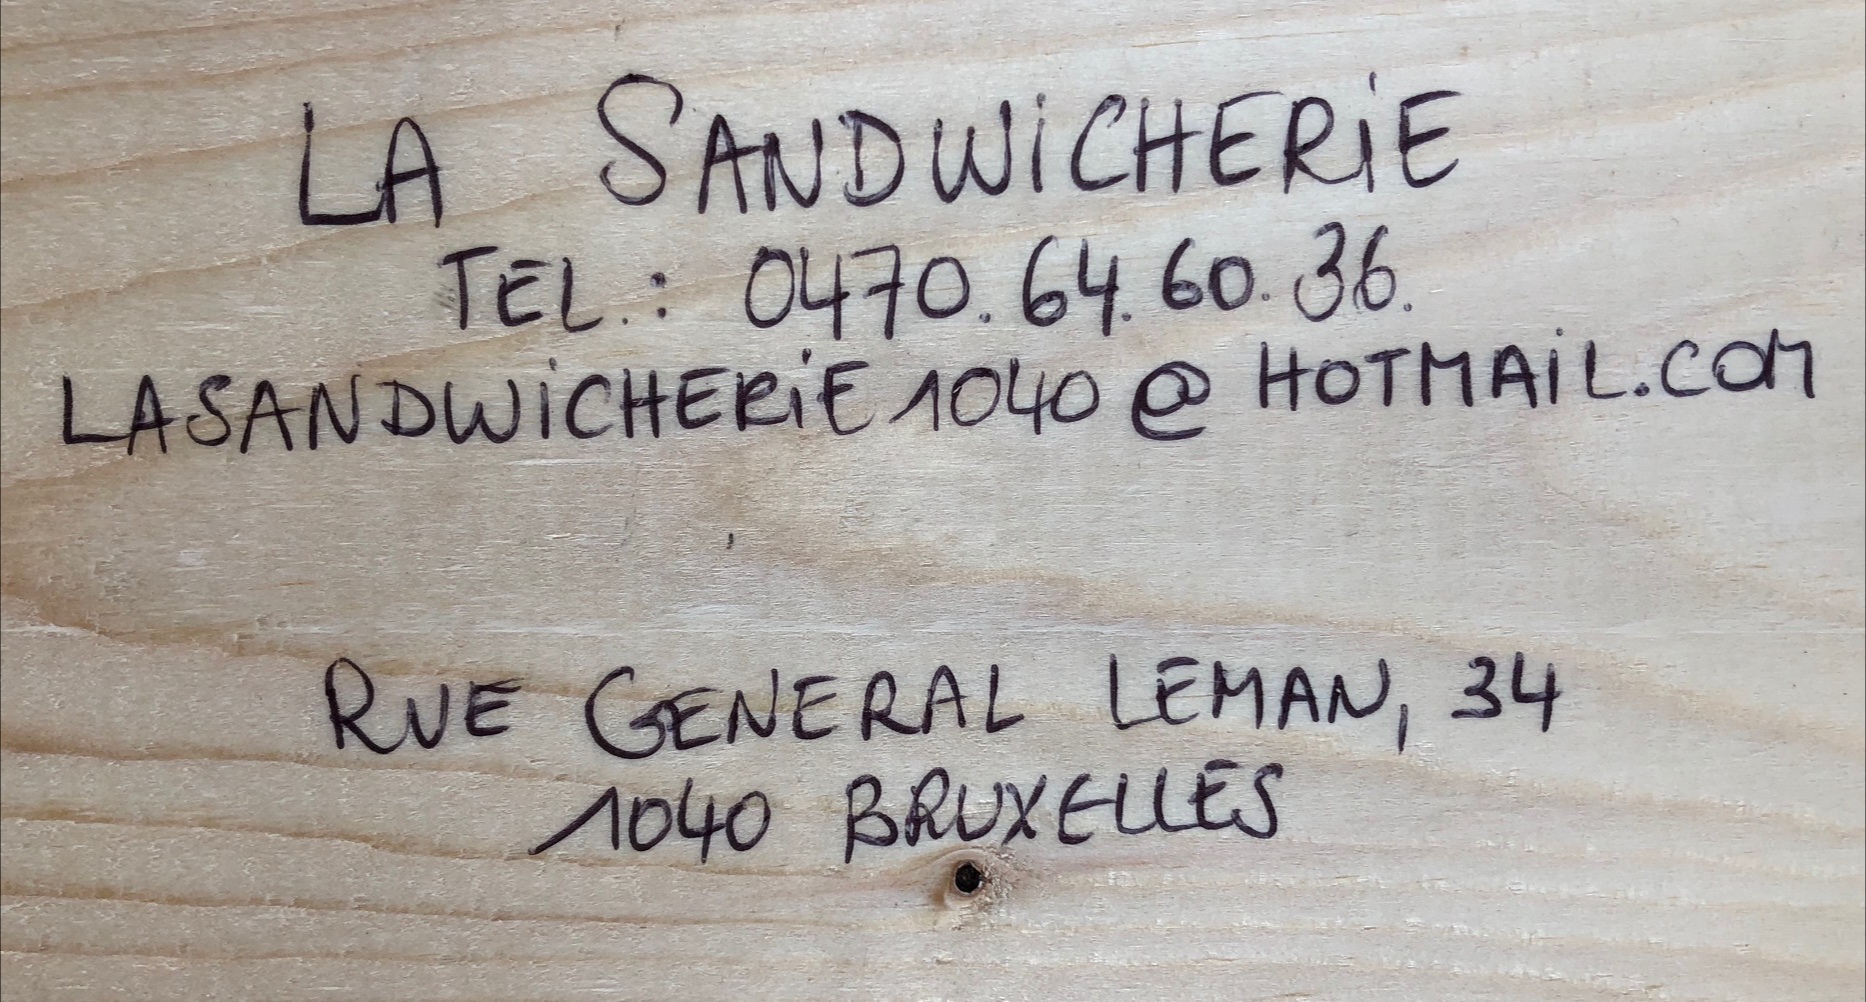 LA SANDWiCHERiE
TEL.: 0470.64.60.36.
LASANDWiCHERiE1040@HOTMAiL.COM
RUE GENERAL LEMAN, 34
1040 BRUXELLES